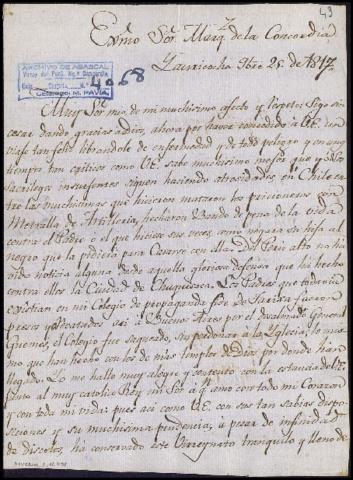 43
Exmo Sor. Marqs. de la Concordia
Lauricocha 9bre 25. de 1817.
ARCHIVO DE ABASCAL
Virrey del Perú, Mqs. Concordia
4068
COLEGIO: M. PAVIA.
Muy Sor. mio, de mi muchisimo afecto y respeto: Sigo sin
cesar dando gracias a Dios, ahora por haver concedido a VE. un
viaje tan feliz librandole de enfermedad y de todo peligro y en un
tiempo tan critico, como VE. sabe mucho mejor que yo. Estos
sacrilegos insurgentes siguen haciendo atrosidades, en Chile en-
tre las muchisimas que hicieron mataron los pricioneros con
Metralla de Artilleria, hecharon Bando de pena de la vida
contra el Padre o el que hiciese sus veces como negara su hija al
negro que la pidiera para Casarse con ella. Del Perú alto no ha
avido noticia alguna desde aquella gloriosa defensa que ha hecho
contra ellos la Ciudad de Chuquisaca. Los Padres que todavia
existian en mi Colegio de propaganda fide de Tarija fueron
presos y desterrados asi a Buenos Ayres por el General
Guemes, el Colegio fue saqueado, sin perdonar a la Iglesia, lo mis-
mo que han hecho con los de mas templos de Dios por donde han
llegado. Yo me hallo muy alegre y contento con la estada de VE.
junto al muy catholico Rey mi Sor. a qn. amo con todo mi Corazon
y con toda mi vida: pues asi como VE. con sus tan sabias dispo-
siciones y su muchisima prudencia, a pesar de infinidad
de discolos, ha conservado este Vireynato tranquilo y lleno de